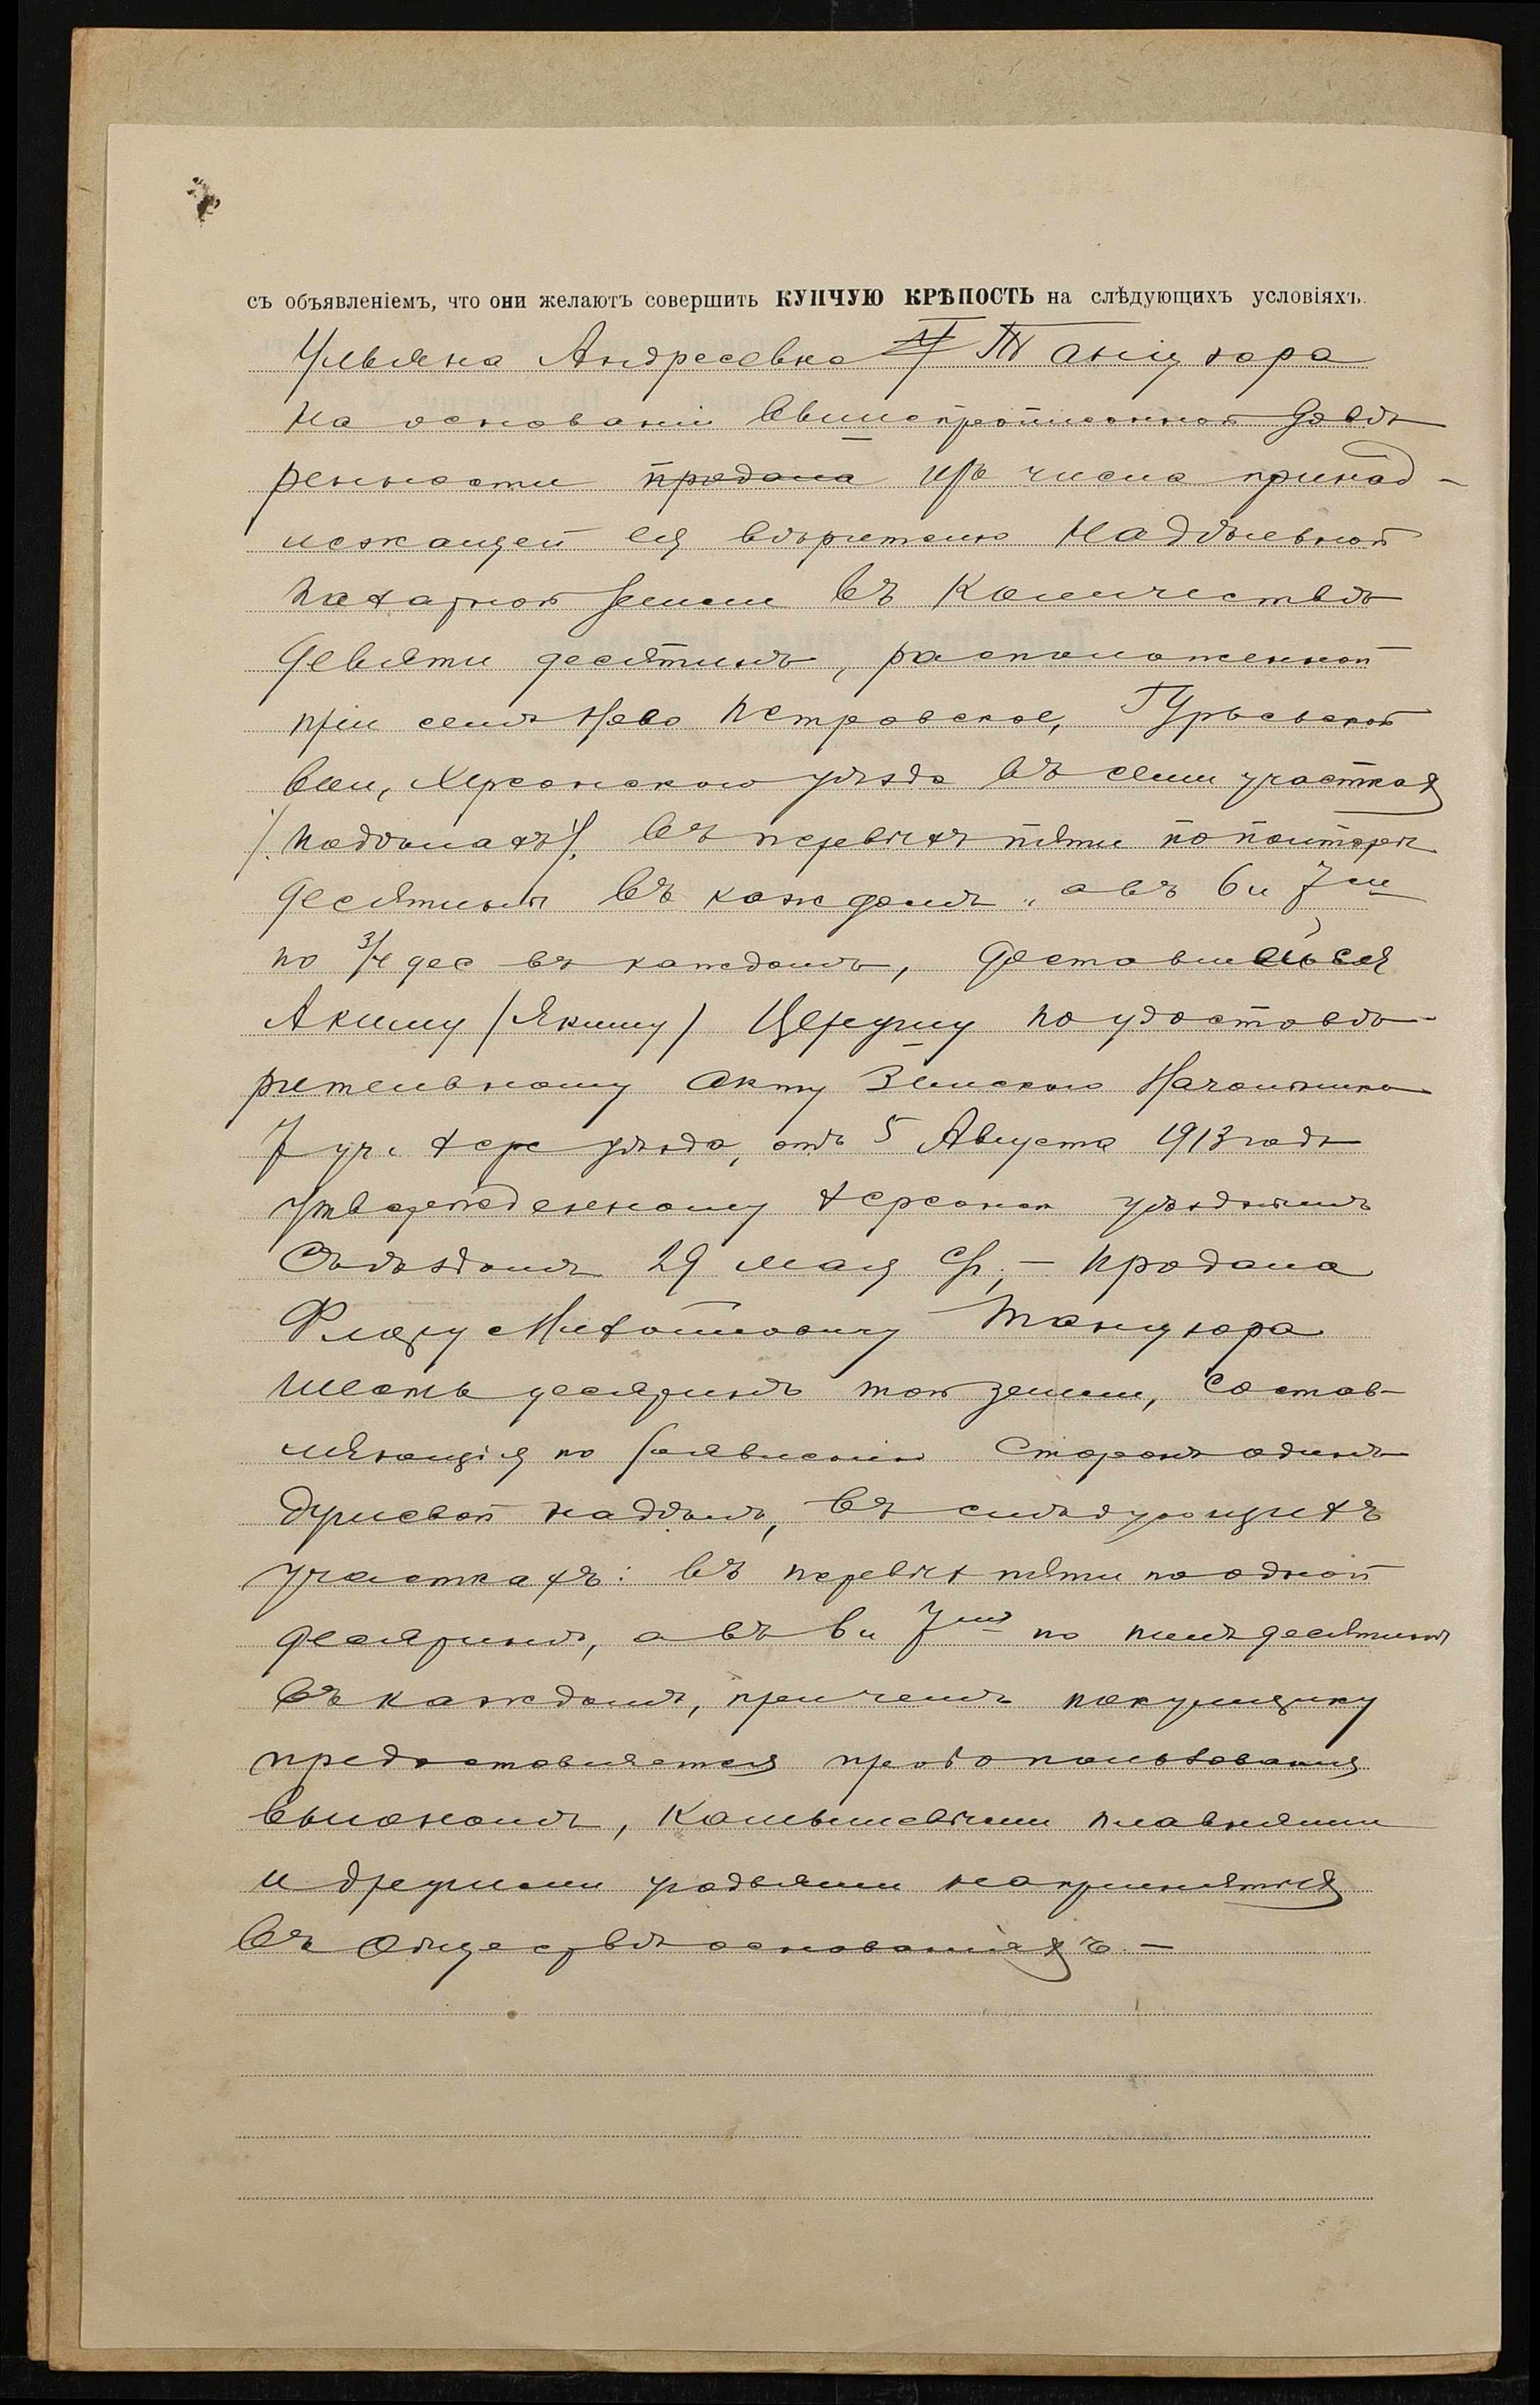 съ объявленіемъ, что они желаютъ совершить КУПЧУЮ КРѢПОСТЬ на слѣдующихъ условіяхъ.
Ульяна Андреевна Танцюра
на основаніи вышепрописанной довѣ
ренности продала изъ числа принад-
лежащей ея вѣрителю надѣльной
пахатной земли въ количествѣ
девяти десятинъ, расположенной
при селѣ Ново Петровское,
вол, Херсонскаго уѣзда въ семи участках
/. подѣлахъ /. въ первыхъ пяти по полторы
десятины въ каждомъ, а въ 6 и 7мъ
по 3/4 дес въ каждомъ, доставшейся
Акиму /Якиму/ по удостовѣ-
рительному акту Земскаго Начальника
7 уч. Херс уѣзда, отъ 5 Августа 1913 года
утвержденному Херсонск уѣзднымъ
Съѣздомъ 29 мая с/г. - продала
Флору Танцюра
шесть десятинъ той земли, состав-
ляющія по заявленію сторонъ одинъ
душевой надѣлъ, въ слѣдующихъ
участкахъ: въ первых пяти по одной
десятинѣ, а въ 6 и 7мъ по полъ десятины
въ каждомъ, причемъ покупщику
предоставляется право пользованія
выгономъ, камышевыми плавнями
и другими угодьями на принятыхъ
въ обществѣ основаніяхъ. -